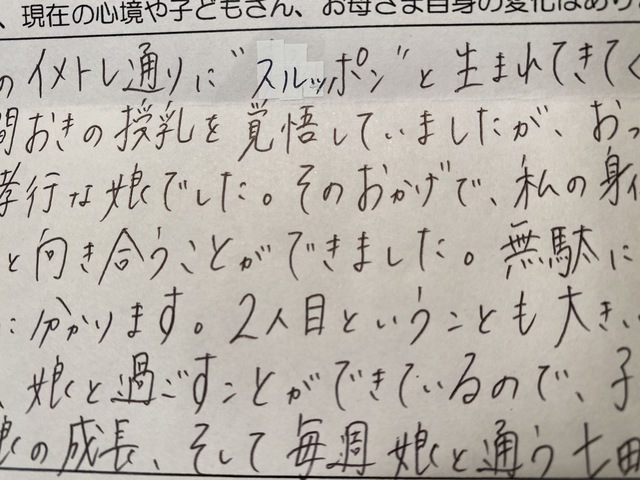 、現在の心境や子どもさん、お母さま自身の変化はあり
のイメトレ通りに"スルッポン"と生まれてきてく
間おきの授乳を覚悟していましたが、おっ
孝行な娘でした。そのおかげで、私の身
と向き合うことができました。無駄に
に分かります。2人目ということも大き
、娘と過ごすことができているので、子
娘の成長、そして毎週娘と通う七田